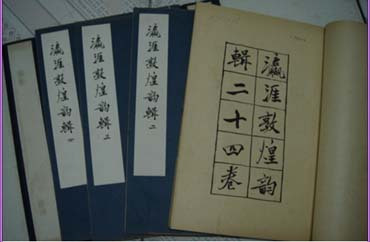 瀛涯敦煌韵
輯二十四卷
瀛涯敦煌韵輯二
瀛涯敦煌韵輯三
瀛涯敦煌韵輯四